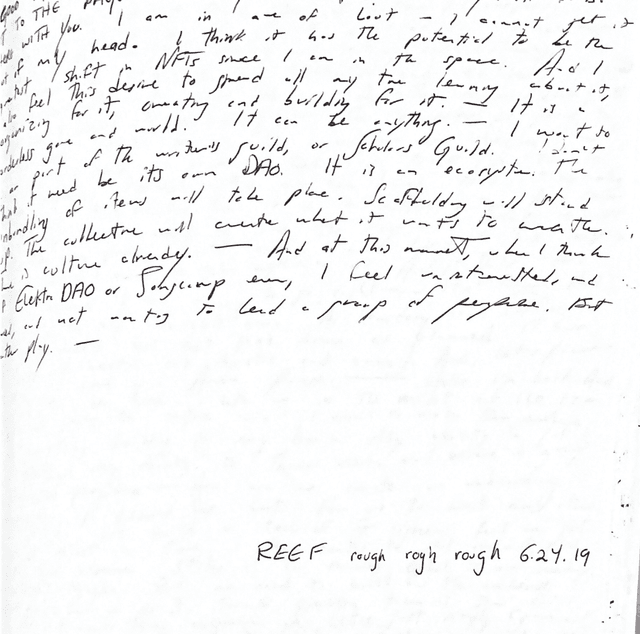 GOOD
T TO THE
WITH YOU. I am in awe of Loot – I cannot get it
out of my head. I think it has the potential to be the
shift in NFTs since I am in the space. And I
also feel this desire to spend all my time learning about it,
organizing for it, creating and building for it. — It is a
borderless game and world. It can be anything. — I want to
or part of the writer's guild, or Scholars Guild. I don't
think it need be its own DAO. It is an ecosystem. The
unbundling of items will take place. Scaffolding will stand
up. The collective will create what it wants to create.
is culture already. — And at this moment, when I think
Elektra DAO or Songcamp even, I feel uninterested, and
and not wanting to lead a group of people. But
play. —
REEF rough rogh rough 6.24.19